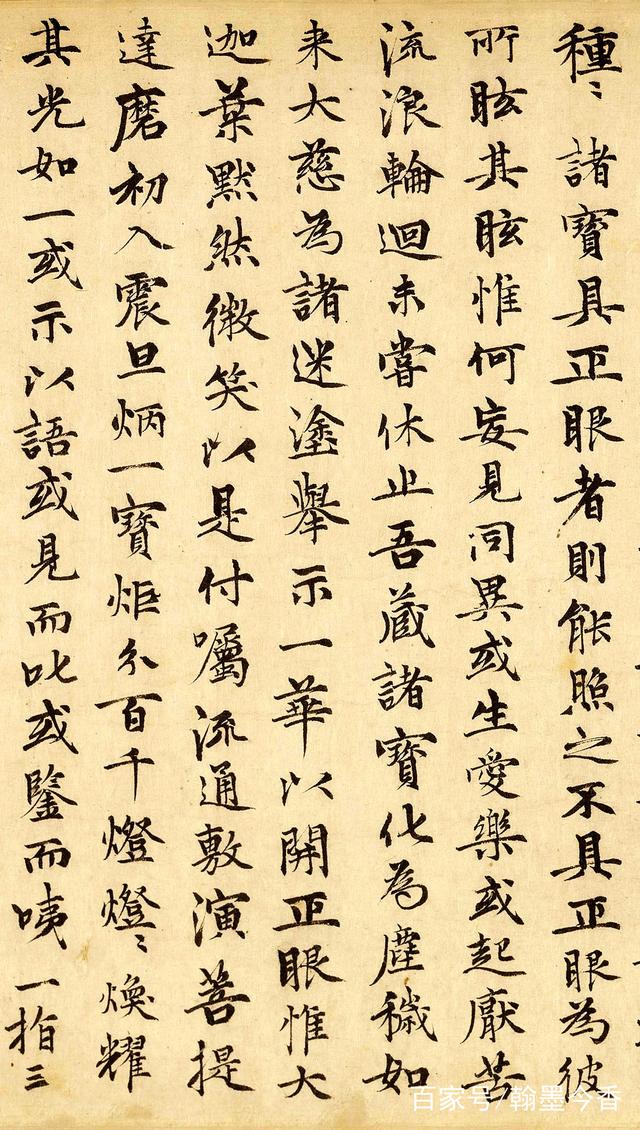 種〻諸寶具正眼者則能照之不具正眼為彼
所眩其眩惟何妄見同異或生愛樂或起厭苦
流浪輪迴未嘗休止吾藏諸寶化為塵穢如
来大慈為諸迷塗舉示一華以開正眼惟大
迦葉默然微笑以是付囑流通敷演菩提
達磨初入震旦炳一寶炬分百千燈燈〻煥耀
其光如一或示以語或見而叱或鑒而咦一指三
百家号/翰墨今香